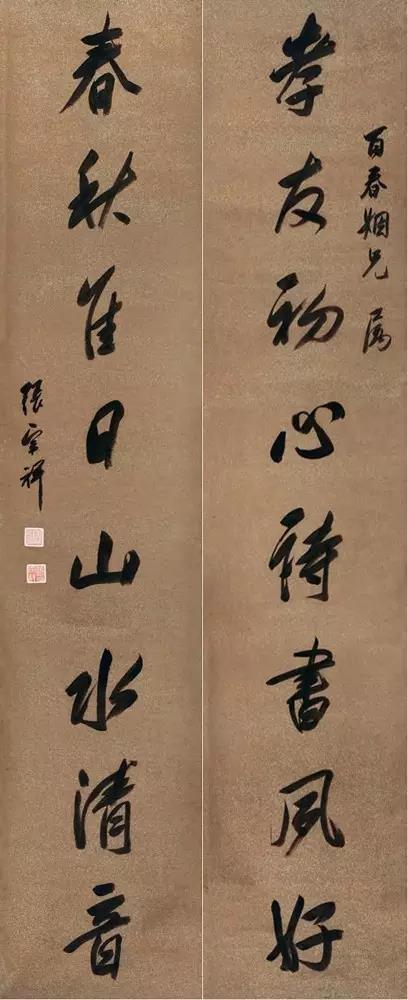 百春姻兄属
孝友初心诗书夙好
春秋佳日山水清音
張宗祥